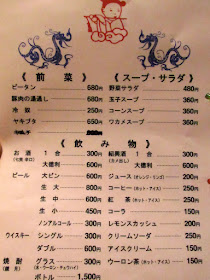 《前菜》
ピータン 680円
豚肉の湯通し 680円
冷奴 250円
ヤキブタ 650円
《スープ・サラダ》
野菜サラダ 480円
玉子スープ 360円
コーンスープ 360円
ワカメスープ 360円
《飲み物》
お酒 1合 300円
大徳利 600円
ビール 大ビン 600円
生大 800円
生中 600円
生小 450円
ノンアルコール 300円
ウイスキー シングル 300円
ダブル 600円
焼酎 グラス 300円
(水・ウーロン・チュウハイ)
ボトル 1,500円
紹興酒 1合 300円
大徳利 600円
ジュース(オレンジ・リンゴ) 200円
コーヒー(ホット・アイス) 250円
紅茶(ホット・アイス) 250円
コーラ 150円
レモンスカッシュ 200円
クリームソーダ 250円
アイスクリーム 150円
ウーロン茶(ホット・アイス) 150円